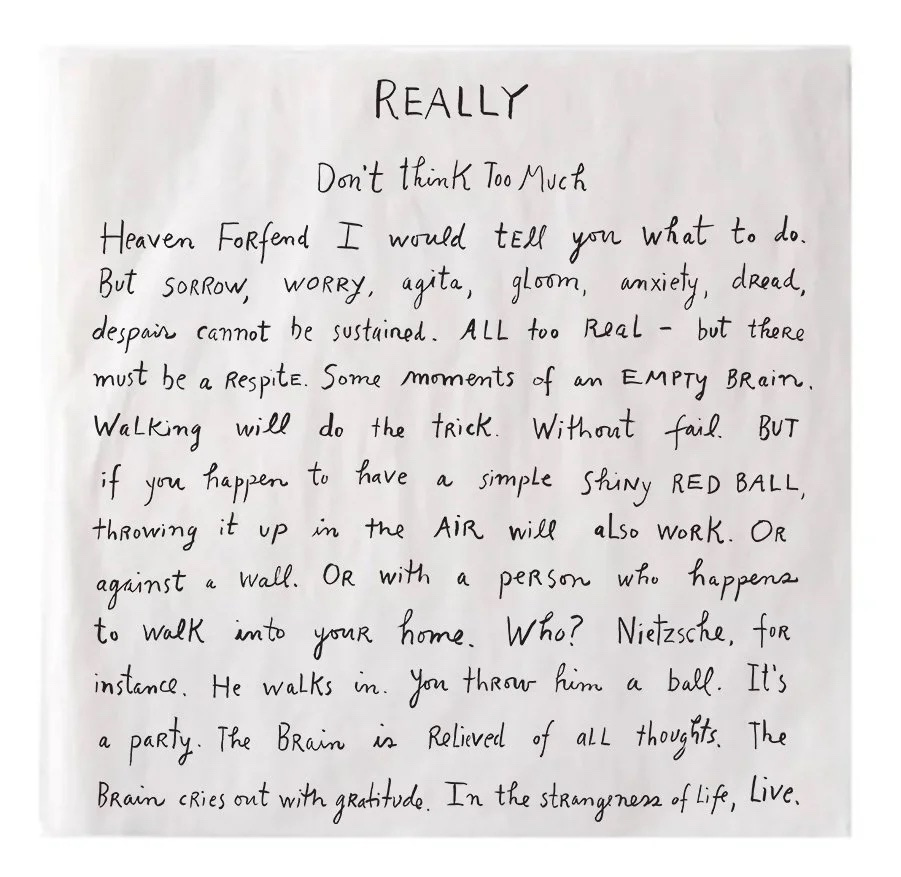 REALLY
Don't think Too Much
Heaven Forfend I would tell you what to do.
But SORROW, WORRY, agita, gloom, anxiety, dread,
despair cannot be sustained. ALL too Real - but there
must be a Respite. Some moments of an EMPTY BRain.
Walking will do the trick. Without fail. BUT
if you happen to have a simple Shiny RED BALL,
throwing it up in the AIR will also work. OR
against a wall. OR with a person who happens
to walk into your home. Who? Nietzsche, for
instance. He walks in. You throw him a ball. It's
a party. The BRain is Relieved of all thoughts. The
BRain cries out with gratitude. In the strangeness of Life, Live.